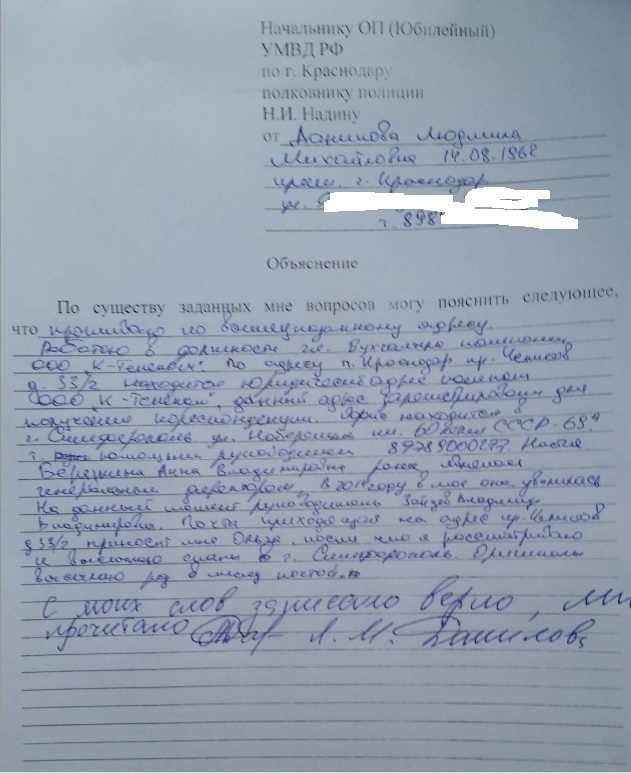 Начальнику ОП (Юбилейный)
УМВД РФ
по г. Краснодару
полковнику полиции
Н.И. Надину
от Данилова Людмила
Михайловна 14.08.1968
прож. г. Краснодар
ул.
т. 898
Объяснение
По существу заданных мне вопросов могу пояснить следующее,
что проживаю по вышеуказанному адресу.
Работаю в должности гл. бухгалтера компании
ООО "К-Телеком". По адресу г. Краснодар пр. Чекистов
д. 33/2 находится юридический адрес компании
ООО "К-Телеком", данный адрес зарегистрирован для
получения корреспонденции. Офис находится в
г. Симферополь ул. Набережная им. 60 летия СССР-69
т. помощника руководителя
Бережкина Анна Владимировна ранее
генеральным директором, в году она уволилась
На данный момент руководитель Зайцев Владимир
Владимирович. Почта приходящая на адрес пр. Чекистов
д 33/2 приносит мне после чего я рассматриваю
и высылаю сканы в г. Симферополь. Оригиналы
высылаю раз в месяц
С моих слов записано верно,
прочитано Л.М. Данилова